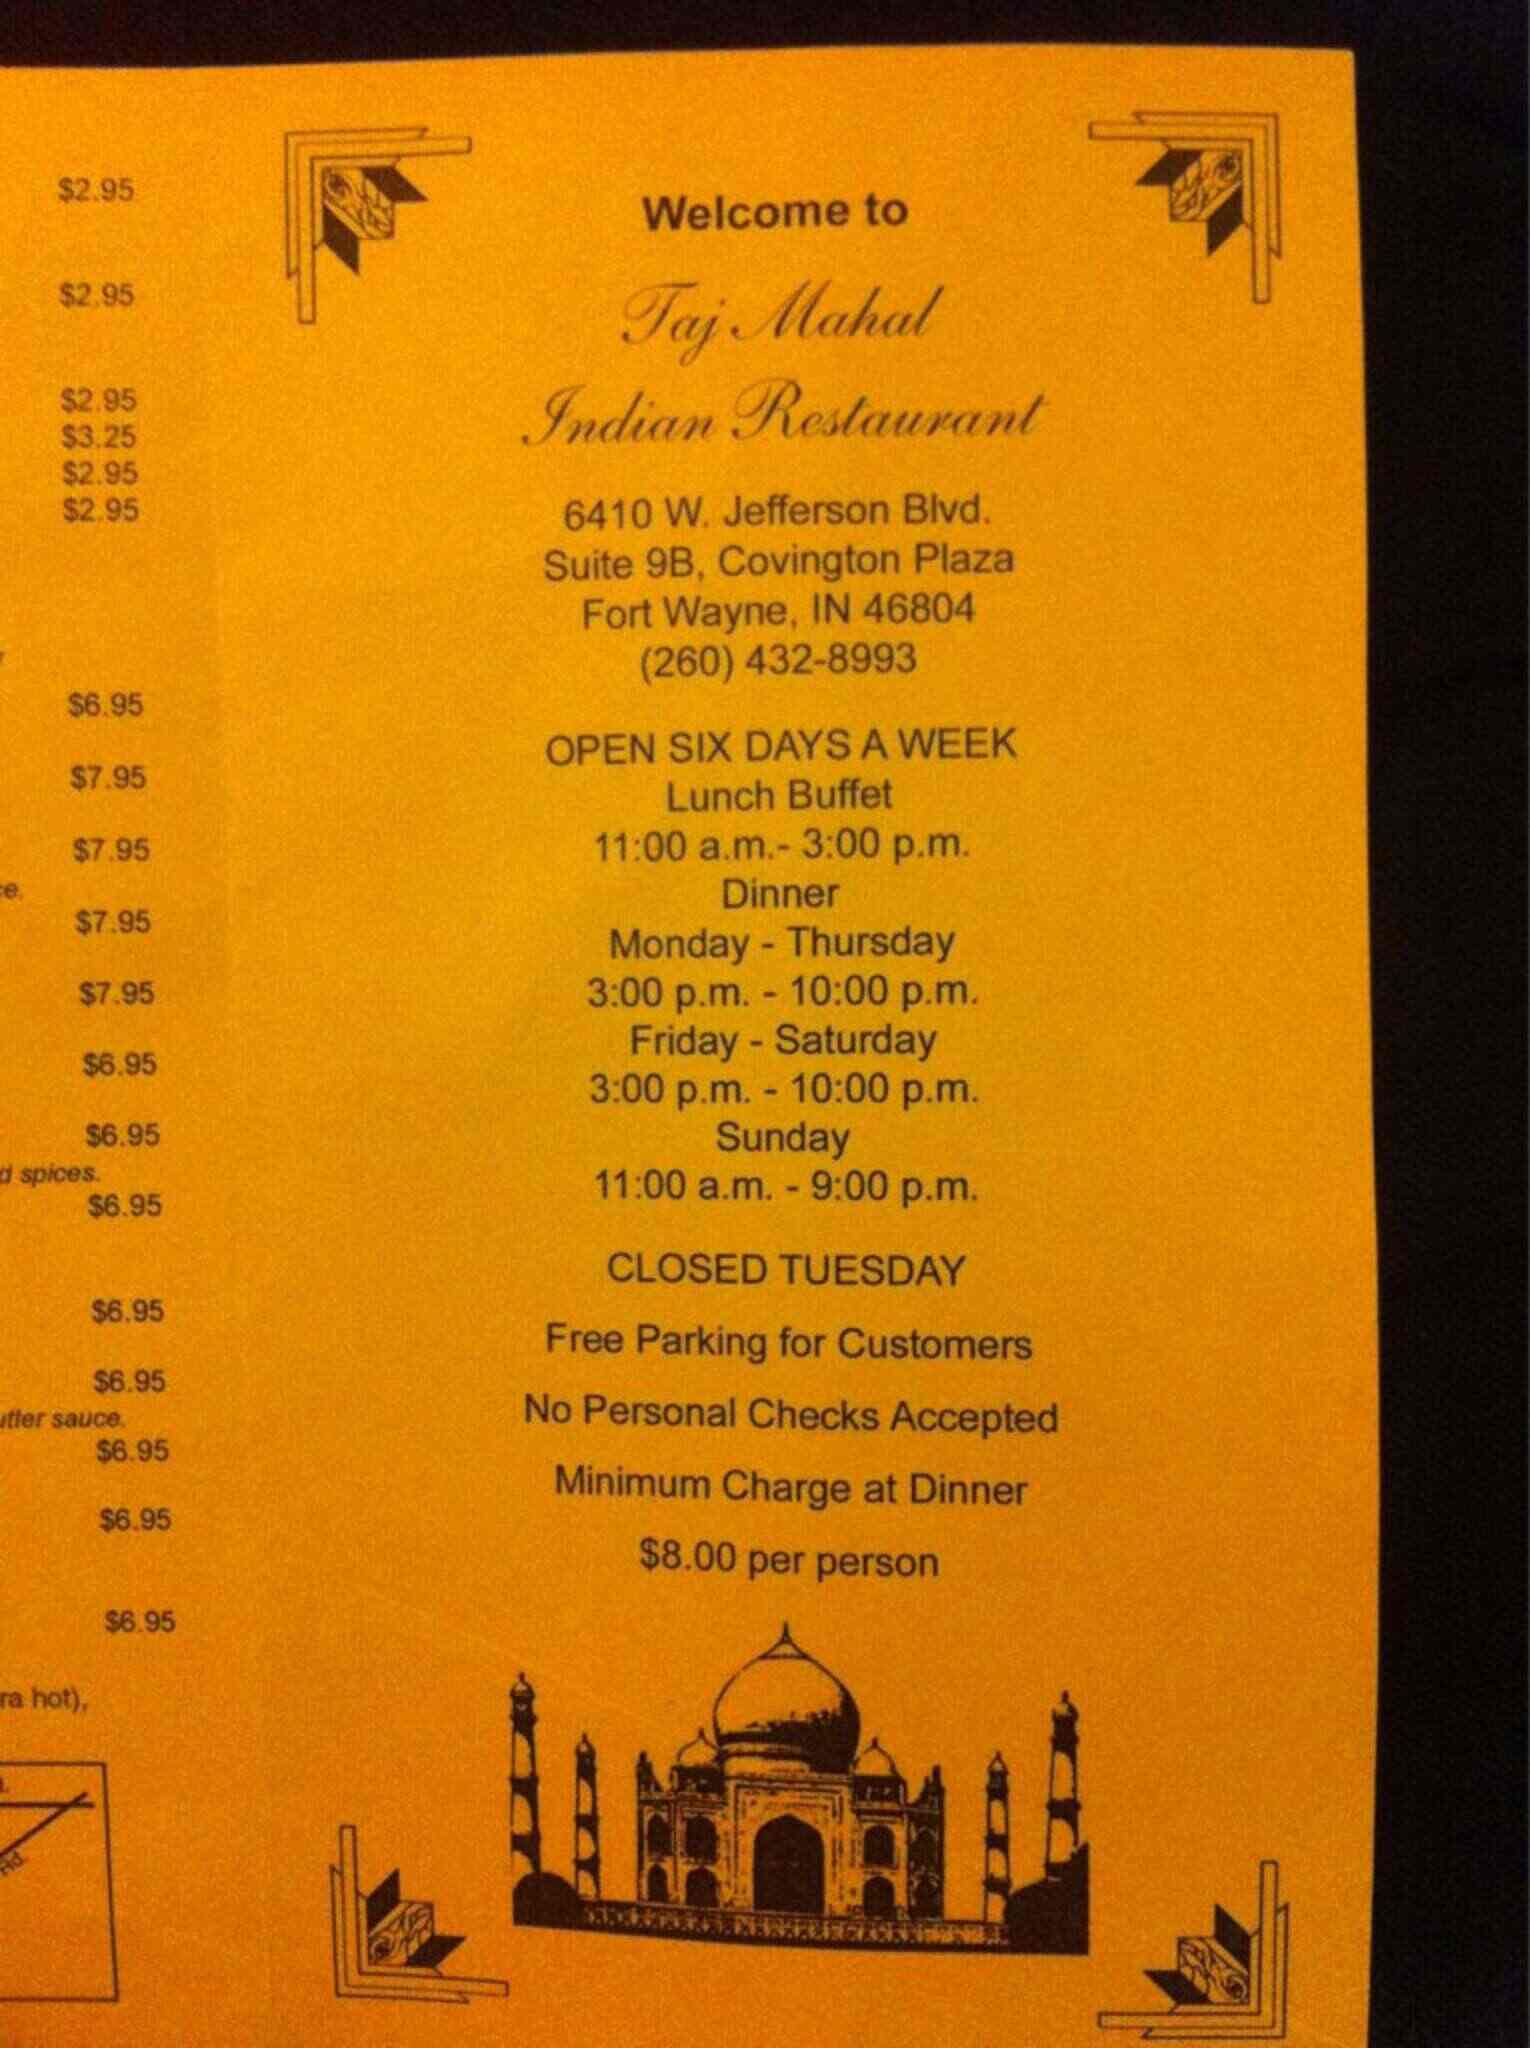 $2.95
$2.95
$2.95
$3.25
$2.95
$2.95
$6.95
$7.95
$7.95
ce.
$7.95
$7.95
$6.95
$6.95
d spices.
$6.95
$6.95
$6.95
utter sauce.
$6.95
$6.95
$6.95
ra hot),
Rd.
Welcome to
Taj Mahal
Indian Restaurant
6410 W. Jefferson Blvd.
Suite 9B, Covington Plaza
Fort Wayne, IN 46804
(260) 432-8993
OPEN SIX DAYS A WEEK
Lunch Buffet
11:00 a.m.- 3:00 p.m.
Dinner
Monday - Thursday
3:00 p.m. - 10:00 p.m.
Friday - Saturday
3:00 p.m. - 10:00 p.m.
Sunday
11:00 a.m. - 9:00 p.m.
CLOSED TUESDAY
Free Parking for Customers
No Personal Checks Accepted
Minimum Charge at Dinner
$8.00 per person